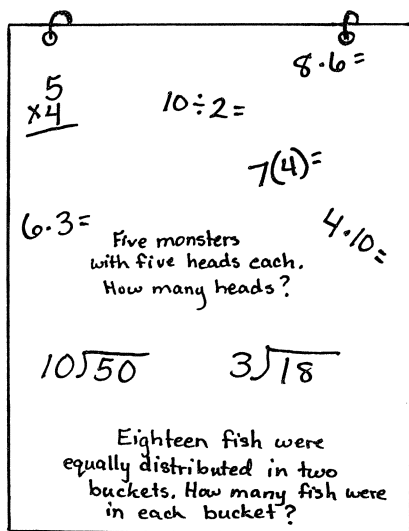 8·6=
5
×4
10÷2=
7(4)=
6·3=
4·10=
Five monsters
with five heads each.
How many heads?
10)50
3)18
Eighteen fish were
equally distributed in two
buckets. How many fish were
in each bucket?